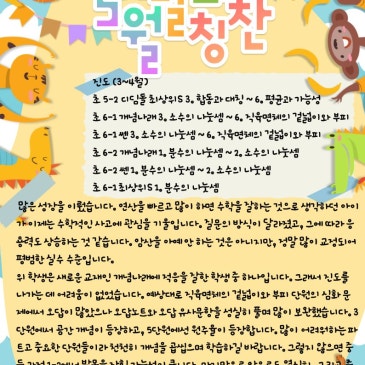 칭찬
진도 (3~4월)
초 5-2 디딤돌 최상위S 3. 합동과 대칭 ~ 6. 평균과 가능성
초 6-1 개념나래 3. 소수의 나눗셈 ~ 6. 직육면체의 겉넓이와 부피
초 6-1 쎈 3. 소수의 나눗셈 ~ 6. 직육면체의 겉넓이와 부피
초 6-2 개념나래 1. 분수의 나눗셈 ~ 2. 소수의 나눗셈
초 6-2 쎈 1. 분수의 나눗셈 ~ 2. 소수의 나눗셈
초 6-1 최상위S 1. 분수의 나눗셈
많은 성장을 이뤘습니다. 연산을 빠르고 많이 하면 수학을 잘하는 것으로 생각하던 아이
가 이제는 수학적인 사고에 관심을 기울입니다. 질문의 방식이 달라졌고, 그에 따라 응
용력도 상승하는 것 같습니다. 암산을 아예 안 하는 것은 아니지만, 정말 많이 교정되어
평범한 실수 수준입니다.
위 학생은 새로운 교재인 개념나래에 적응을 잘한 학생 중 하나입니다. 그래서 진도를
나가는 데 어려움이 없었습니다. 예상대로 직육면체의 겉넓이와 부피 단원의 심화 문
제에서 오답이 많았으나 오답노트와 오답 유사문항을 성실히 풀며 많이 보완했습니다. 3
단원에서 공간 개념이 등장하고, 5단원에선 원주율이 등장합니다. 많이 어려워하는 파
트고 중요한 단원들이라 천천히 개념을 곱씹으며 학습하길 바랍니다. 그렇지 않으면 중